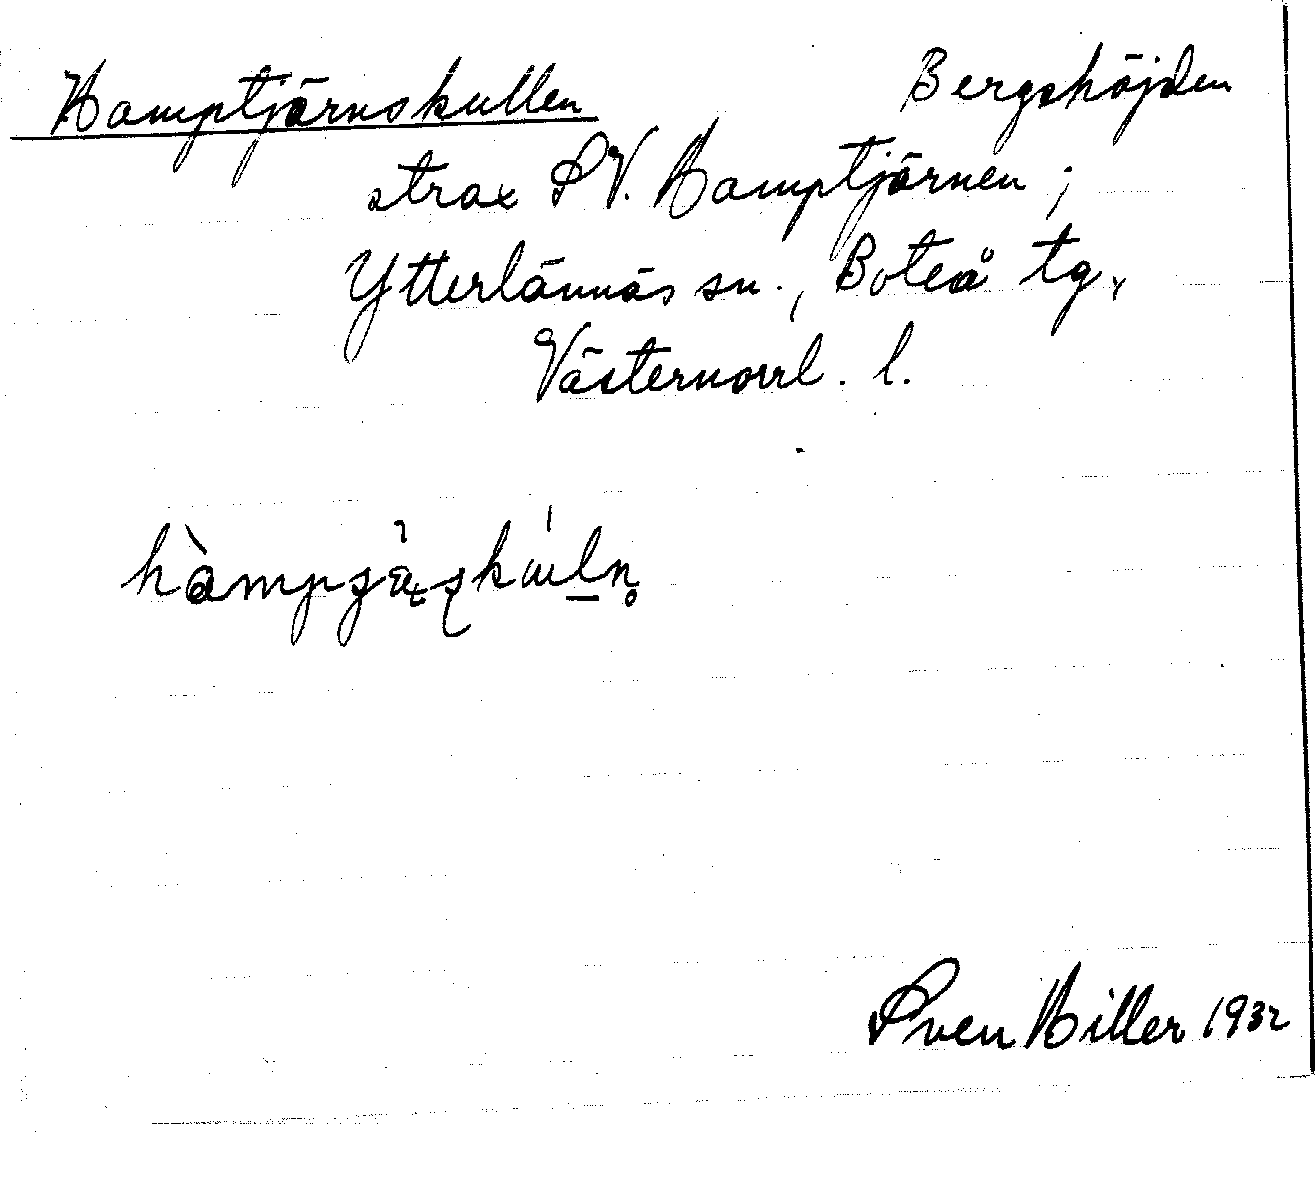 Hamptjärnskullen Bergshöjden
strax SV. Hamptjärnen ;
Ytterlännäs sn., Boteå tg.,
Västernorrl. l.
Sven Hiller 1932